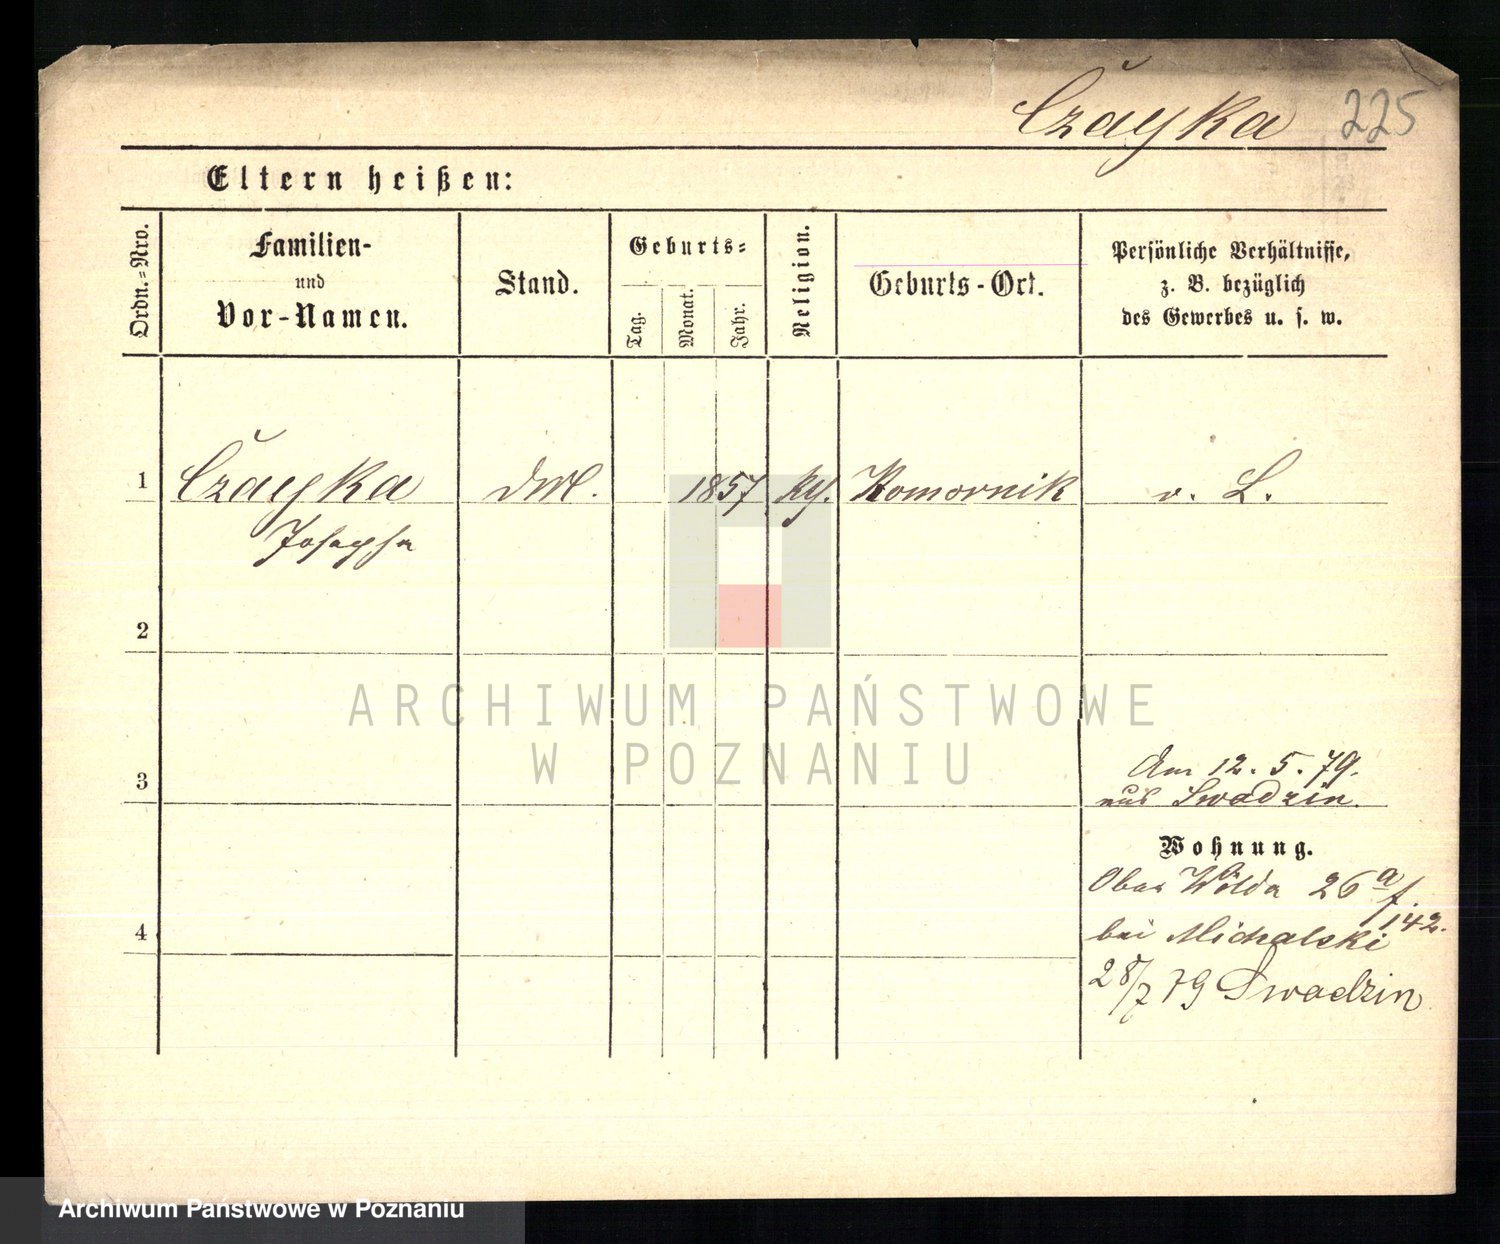 Czayka 225
Eltern heißen:
Ordn.=Nro.
Familien-
und
Vor-Namen.
Stand.
Geburts=
Tag.
Monat.
Jahr.
Religion.
Geburts-Ort.
Persönliche Verhältnisse,
z. B. bezüglich
des Gewerbes u. s. w.
1 Czayka 1857 Komornik v. L.
Josepha
2
ARCHIWUM PAŃSTWOWE
W POZNANIU
Am 12. 5. 79.
3 aus Swadzin.
Wohnung.
Ober Wilda 26 a/f.
142.
4 bei Michalski
28/7 79 Swadzin
Archiwum Państwowe w Poznaniu